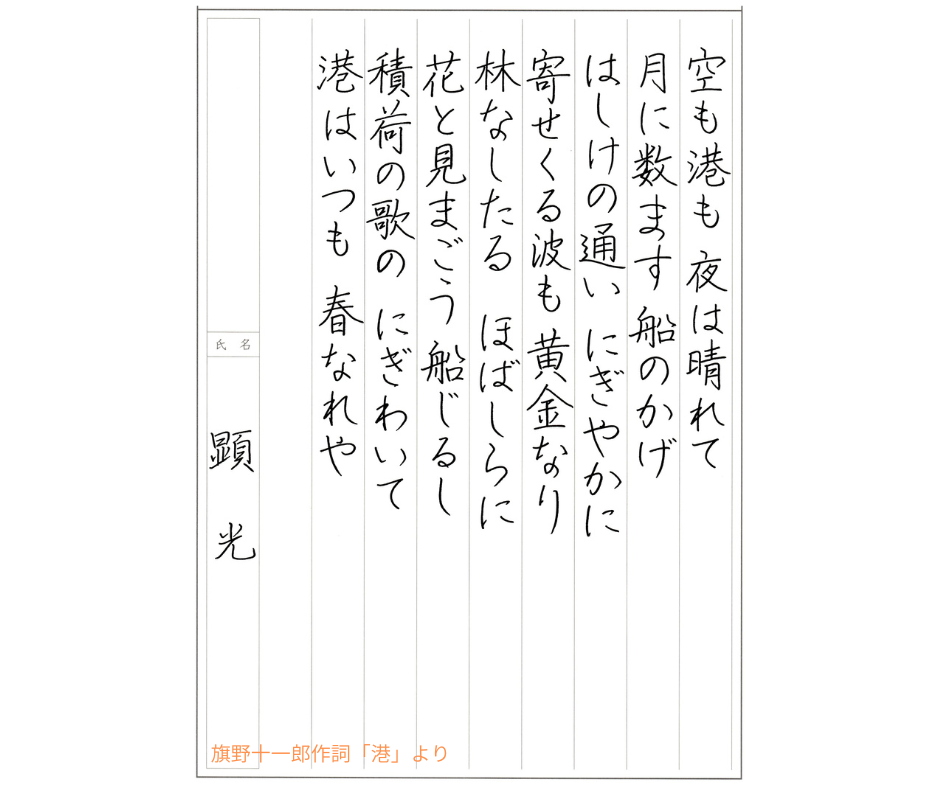 空も港も 夜は晴れて
月に数ます 船のかげ
はしけの通い にぎやかに
寄せくる波も 黄金なり
林なしたる ほばしらに
花と見まごう 船じるし
積荷の歌の にぎわいて
港はいつも 春なれや
氏名
顕光
旗野十一郎作詞「港」より